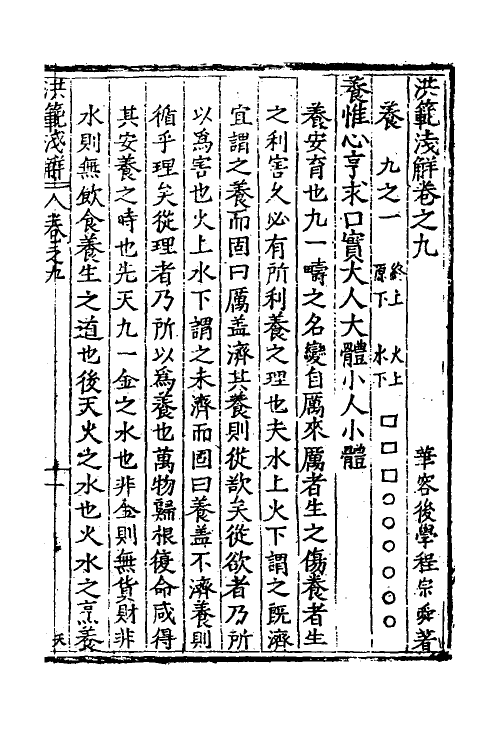 洪範淺解卷之九
華容後學程宗舜著
養 九之一 終上 原下 火上 水下
養惟心亨求口實大人大體小人小體
養安育也九一疇之名變自厲來厲者生之傷養者生
之利害久必有所利養之理也夫水上火下謂之既濟
宜謂之養而固曰厲盖濟其養則從欲矣從欲者乃所
以爲害也火上水下謂之未濟而固曰養盖不濟養則
循乎理矣從理者乃所以爲養也萬物歸根復命咸得
其安養之時也先天九一金之水也非金則無貨財非
水則無飲食養生之道也後天火之水也火水之烹養
洪範淺解 卷之九 一